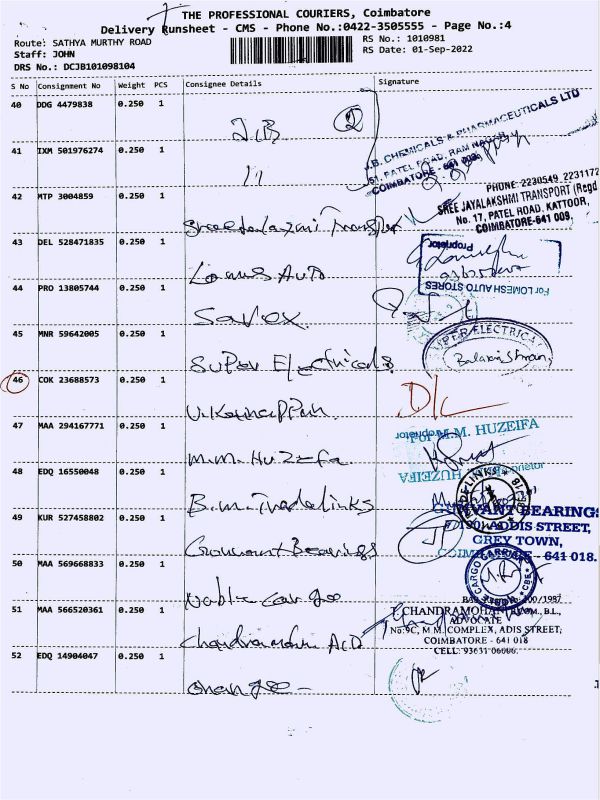 THE PROFESSIONAL COURIERS, Coimbatore
Delivery Runsheet - CMS - Phone No.:0422-3505555 - Page No.:4
Route: SATHYA MURTHY ROAD
Staff: JOHN
DRS No.: DCJB101098104
RS No.: 1010981
RS Date: 01-Sep-2022
S No Consignment No Weight PCS Consignee Details Signature
40 DDG 4479838 0.250 1 J.B
J.B. CHEMICALS & PHARMACEUTICALS LTD
51, PATEL ROAD, RAM NAGAR
COIMBATORE - 641 009.
41 IXM 501976274 0.250 1 11
PHONE: 2230549, 2231172
SREE JAYALAKSHMI TRANSPORT (Regd
No. 17, PATEL ROAD, KATTOOR,
COIMBATORE-641 009.
42 MTP 3004859 0.250 1
43 DEL 528471835 0.250 1 Lomus Auto
Proprietor
For LOMESH AUTO STORES
44 PRO 13805744 0.250 1 Savex
45 MNR 59642005 0.250 1 Super Electricals
SUPER ELECTRICAL
46 COK 23688573 0.250 1 V. Kannappan
D/L
47 MAA 294167771 0.250 1 M.M. Huzefa
For M.M. HUZEIFA
Proprietor
HUZEIFA
Proprietor
48 EDQ 16550048 0.250 1 B.M. Tradelinks
49 KUR 527458802 0.250 1 Gounvant Bearings
BEARINGS
ADDIS STREET,
GREY TOWN,
641 018.
50 MAA 569668833 0.250 1 Nable Cargoo
CARGO CARRIER
CBE
51 MAA 566520361 0.250 1
CHANDRAMOHAN
B.L.,
ADVOCATE
No:9C, M M COMPLEX, ADIS STREET,
COIMBATORE - 641 018
CELL: 93631 06000.
52 EDQ 14904047 0.250 1